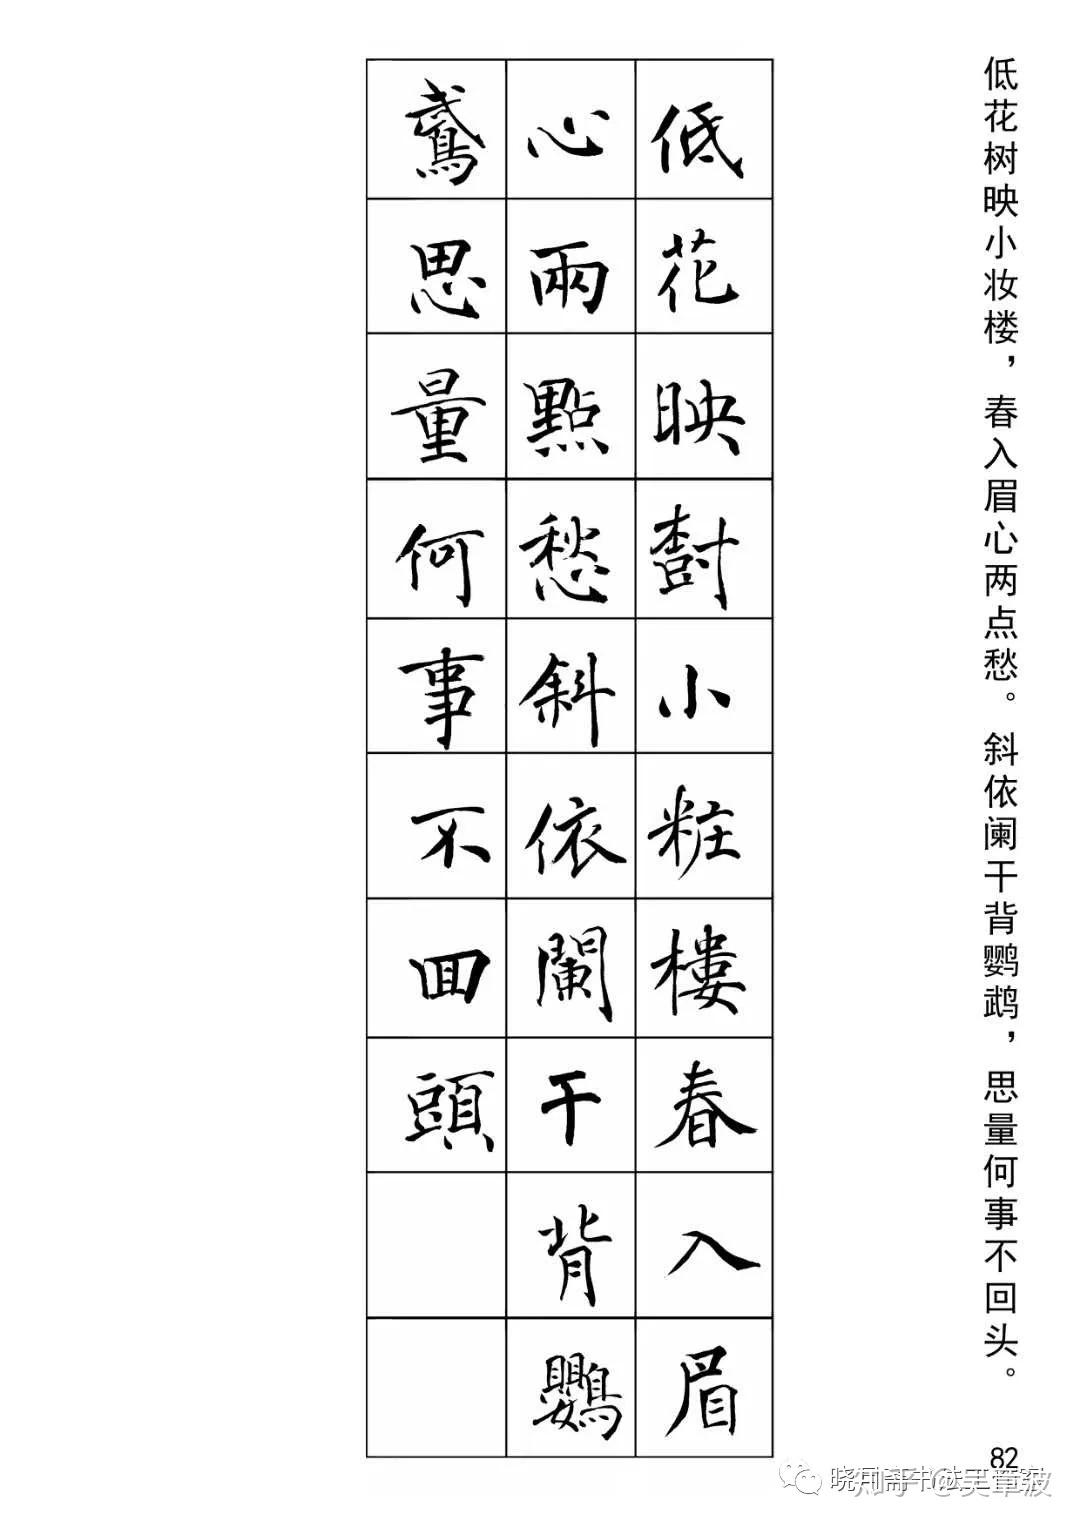 低花树映小妆楼，春入眉心两点愁。斜依阑干背鹦鹉，思量何事不回头。
低花映樹小粧樓春入眉
心兩點愁斜依闌干背鸚
鵡思量何事不囬頭
82
知乎 @吴章波